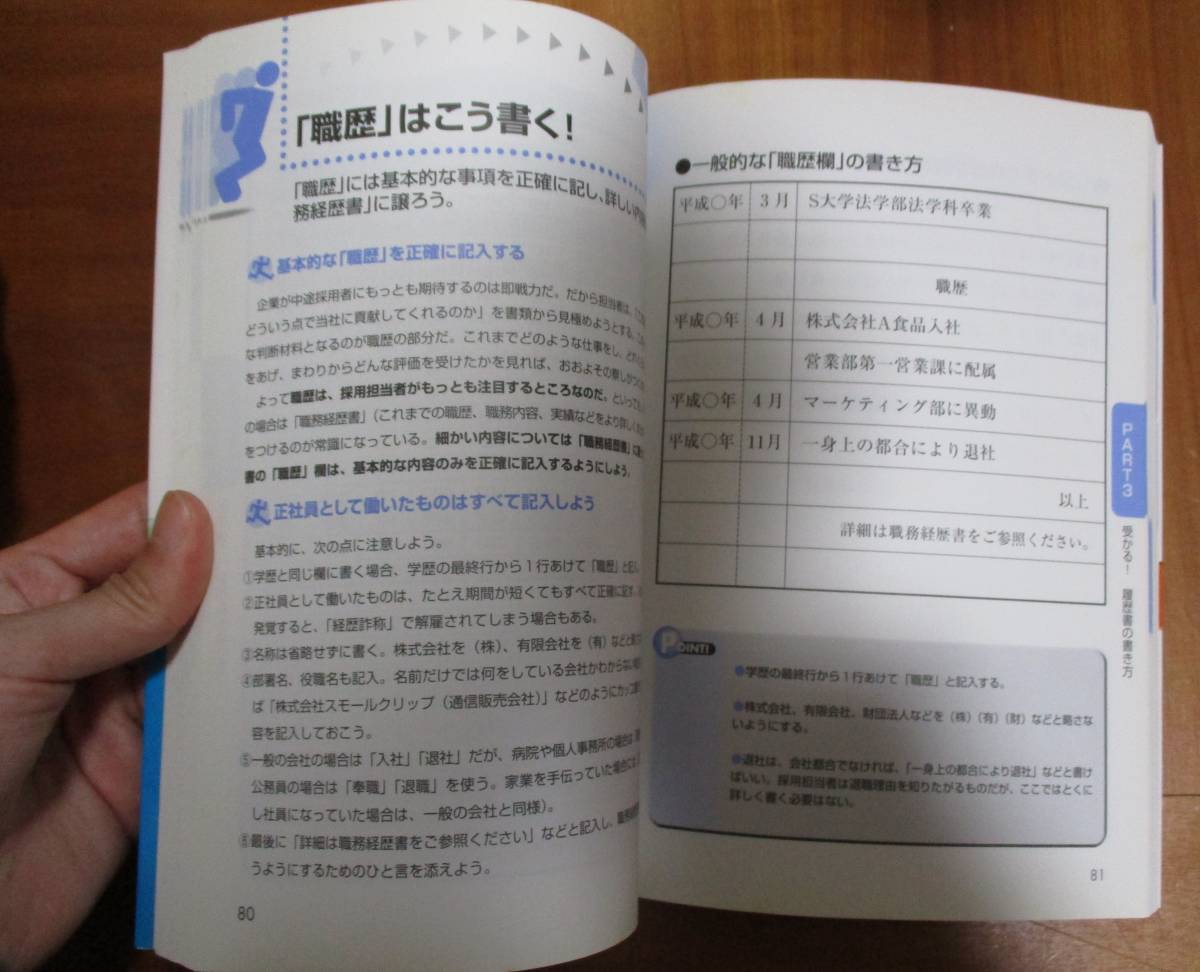 「職歴」はこう書く！
「職歴」には基本的な事項を正確に記し、詳しい内
務経歴書」に譲ろう。
基本的な「職歴」を正確に記入する
企業が中途採用者にもっとも期待するのは即戦力だ。だから担当者は、
どういう点で当社に貢献してくれるのか」を書類から見極めようとする。
な判断材料となるのが職歴の部分だ。これまでどのような仕事をし、
をあげ、まわりからどんな評価を受けたかを見れば、おおよその察しがつ
よって職歴は、採用担当者がもっとも注目するところなのだ。といって
の場合は「職務経歴書」（これまでの職歴、職務内容、実績などをより詳しく
をつけるのが常識になっている。細かい内容については「職務経歴書」に
書の「職歴」欄は、基本的な内容のみを正確に記入するようにしよう。
正社員として働いたものはすべて記入しよう
基本的に、次の点に注意しよう。
①学歴と同じ欄に書く場合、学歴の最終行から1行あけて「職歴」と記
②正社員として働いたものは、たとえ期間が短くてもすべて正確に記す。
発覚すると、「経歴詐称」で解雇されてしまう場合もある。
③名称は省略せずに書く。株式会社を（株）、有限会社を（有）などと
④部署名、役職名も記入。名前だけでは何をしている会社かわからない
ば「株式会社スモールクリップ（通信販売会社）」などのようにカッコ
容を記入しておこう。
⑤一般の会社の場合は「入社」「退社」だが、病院や個人事務所の場合は
公務員の場合は「奉職」「退職」を使う。家業を手伝っていた場合には
し社員になっていた場合は、一般の会社と同様）。
⑥最後に「詳細は職務経歴書をご参照ください」などと記入し、職務
うようにするためのひと言を添えよう。
80
●一般的な「職歴欄」の書き方
平成〇年 3月 S大学法学部法学科卒業
職歴
平成〇年 4月 株式会社A食品入社
営業部第一営業課に配属
平成〇年 4月 マーケティング部に異動
平成〇年 11月 一身上の都合により退社
以上
詳細は職務経歴書をご参照ください。
POINT!
●学歴の最終行から1行あけて「職歴」と記入する。
●株式会社、有限会社、財団法人などを（株）（有）（財）などと略さな
いようにする。
●退社は、会社都合でなければ、「一身上の都合により退社」などと書け
ばいい。採用担当者は退職理由を知りたがるものだが、ここではとくに
詳しく書く必要はない。
PART3
受かる！ 履歴書の書き方
81